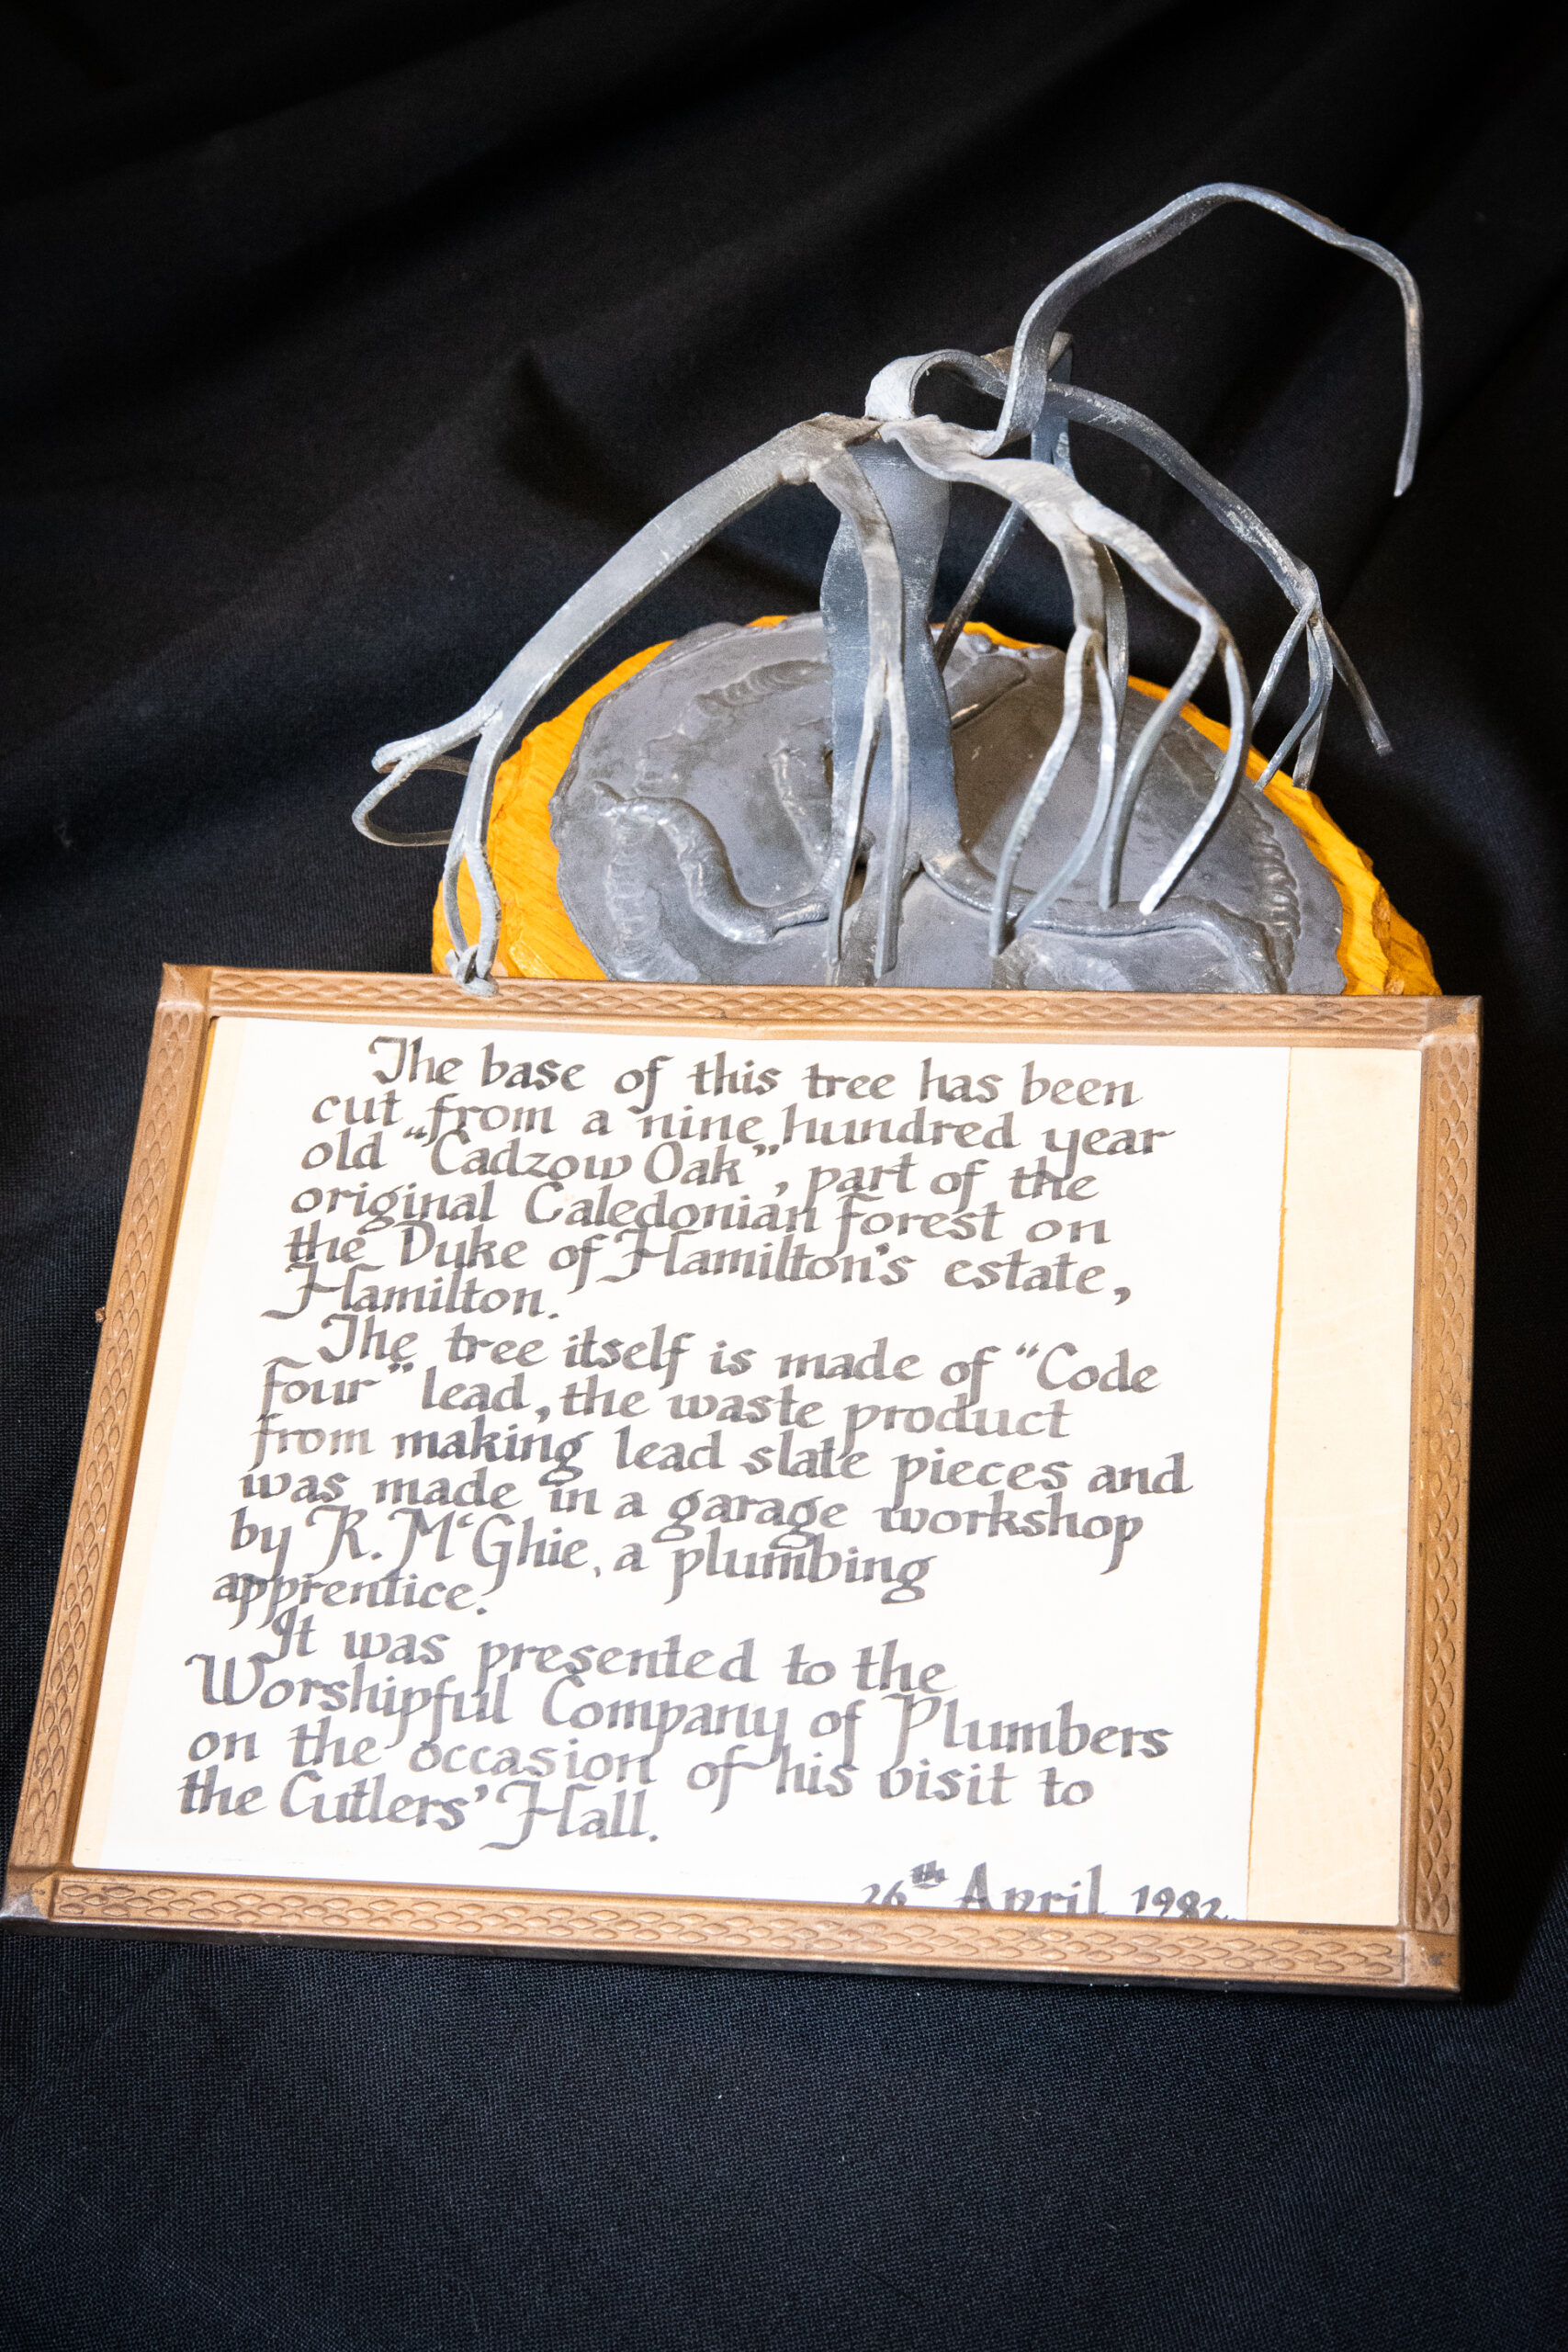 The base of this tree has been
cut from a nine hundred year
old “Cadzow Oak”, part of the
original Caledonian forest on
the Duke of Hamilton's estate,
Hamilton.
The tree itself is made of “Code
four” lead, the waste product
from making lead slate pieces and
was made in a garage workshop
by R. M‘Ghie, a plumbing
apprentice.
It was presented to the
Worshipful Company of Plumbers
on the occasion of his visit to
the Cutlers’ Hall.
26th April 1982.